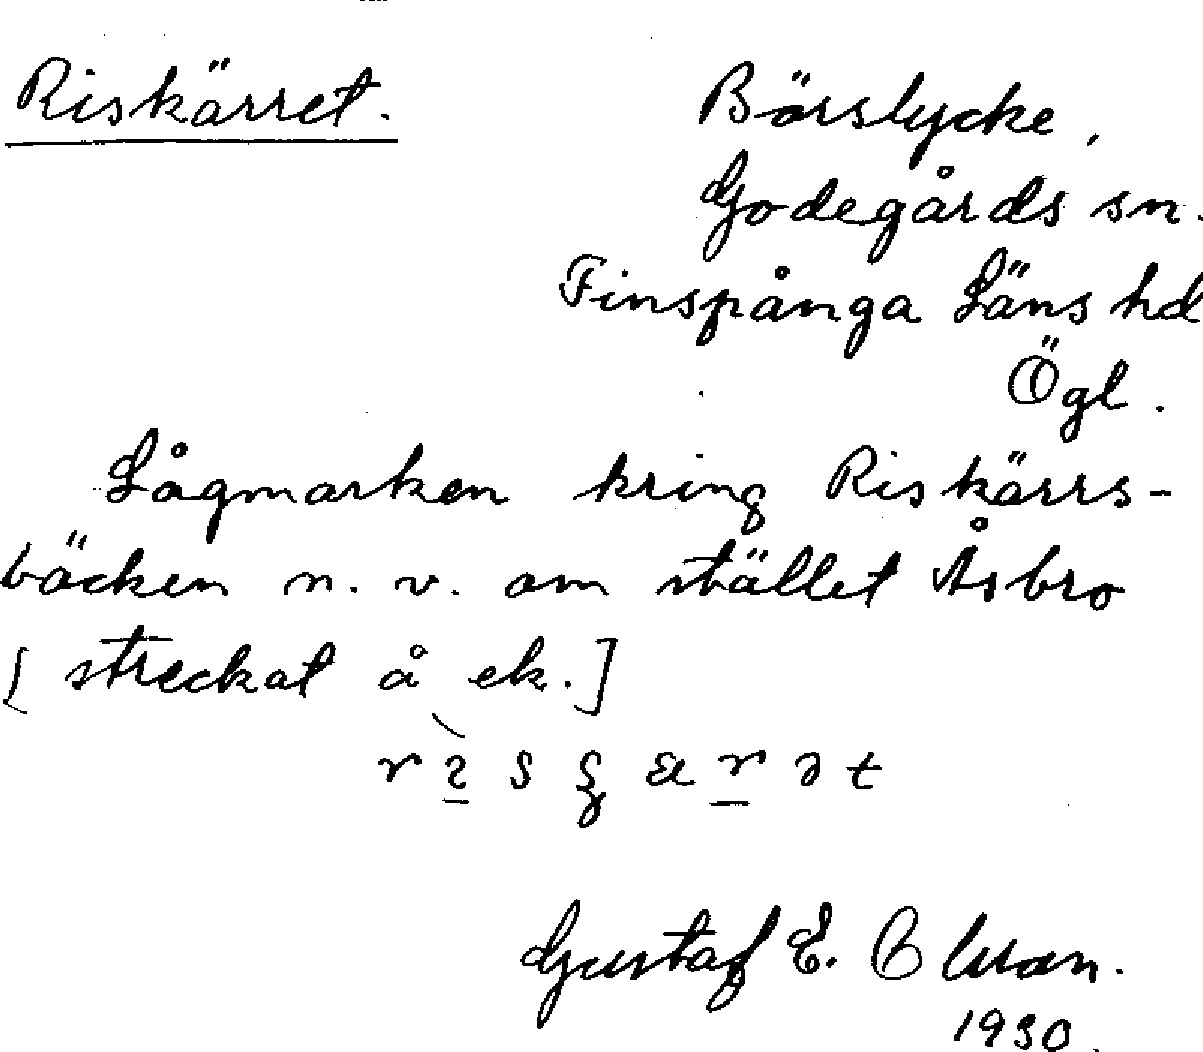 Riskärret.
Börslycke,
Godegårds sn.
Finspånga Läns hd
Ögl.
Lågmarken kring Riskärrs-
bäcken n. v. om stället Åsbro
[streckat å ek.]
Gustaf E.
1930.